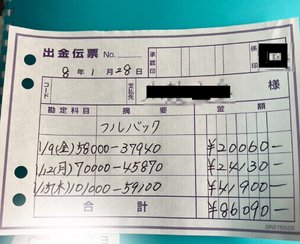 出金伝票 No.
承認印
係印
8年1月28日
コード
支払先
様
勘定科目 摘要 金額
フルバック
1/9(金)58000-37940 ¥20060-
1/12(月)70000-45870 ¥24130-
1/15(木)101000-59100 ¥41900-
合計 ¥86090-